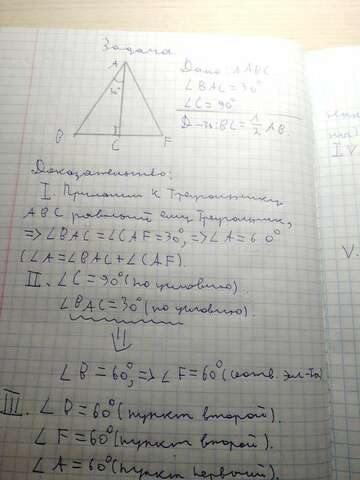 Задача
A
30°
B
C
F
Дано: △ABC
∠BAC=30°
∠C=90°
Д-ть: BC=1/2 AB
Доказательство:
I. Приложим к треугольнику
ABC равный ему треугольник,
=>∠BAC=∠CAF=30°, =>∠A=60°
(∠A=∠BAC+∠CAF).
II. ∠C=90° (по условию).
∠BAC=30° (по условию).
⇓
∠B=60°, =>∠F=60° (соотв. эл-ты)
III. ∠B=60° (пункт второй).
∠F=60° (пункт второй).
∠A=60° (пункт первый).
I.V
V.